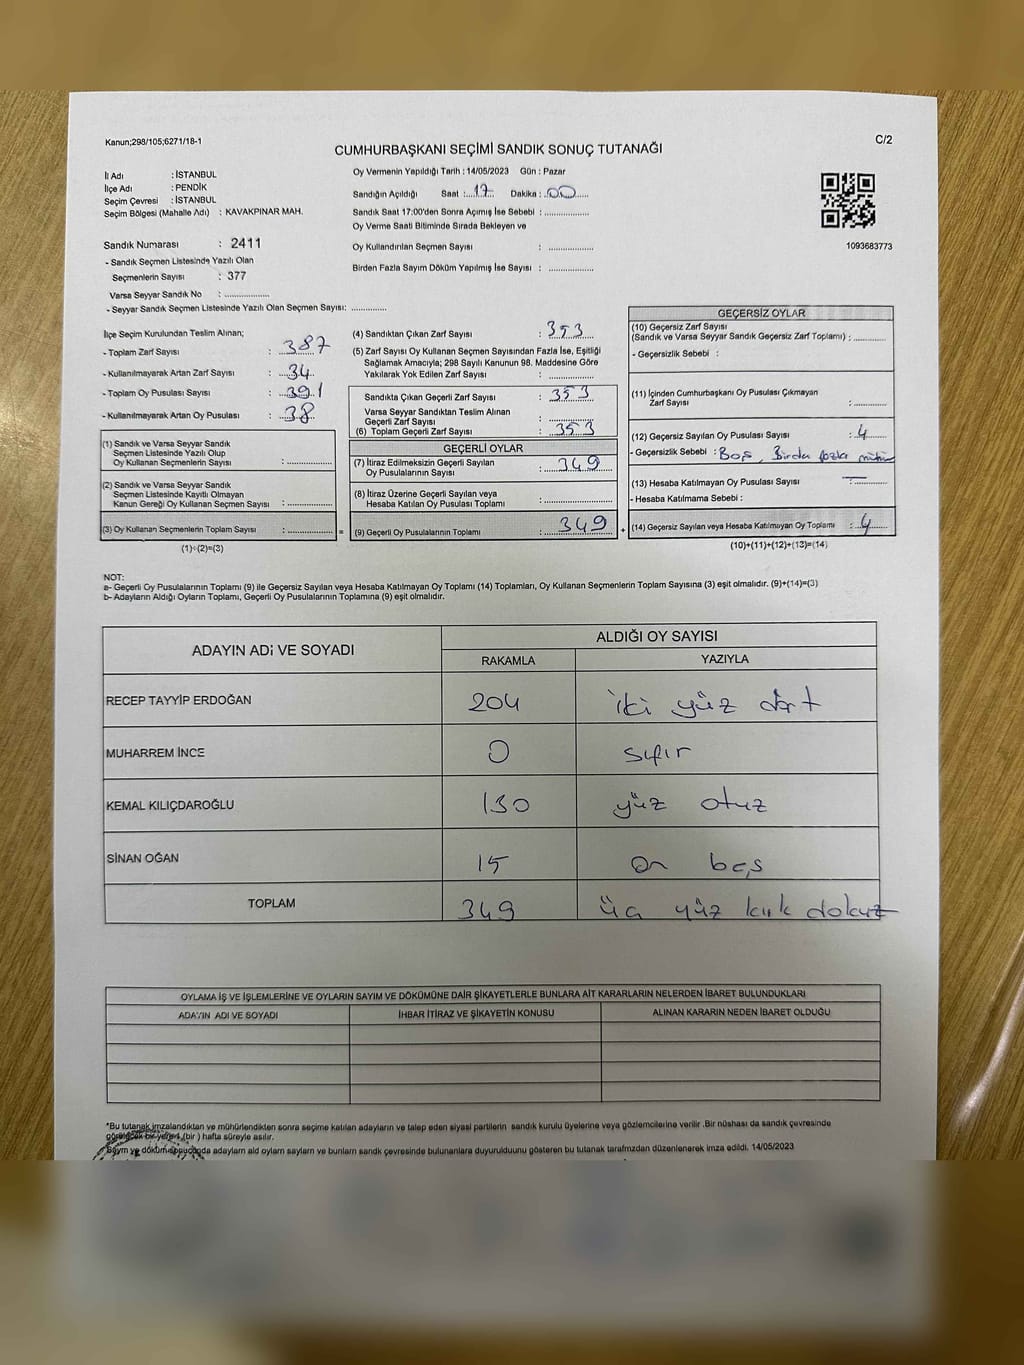 Kanun;298/105;6271/18-1
C/2
CUMHURBAŞKANI SEÇİMİ SANDIK SONUÇ TUTANAĞI
İl Adı : İSTANBUL
İlçe Adı : PENDİK
Seçim Çevresi : İSTANBUL
Seçim Bölgesi (Mahalle Adı) : KAVAKPINAR MAH.
Sandık Numarası : 2411
- Sandık Seçmen Listesinde Yazılı Olan
Seçmenlerin Sayısı : 377
Varsa Seyyar Sandık No : ................
- Seyyar Sandık Seçmen Listesinde Yazılı Olan Seçmen Sayısı: ............
Oy Vermenin Yapıldığı Tarih : 14/05/2023 Gün : Pazar
Sandığın Açıldığı Saat : 17 Dakika : 00
Sandık Saat 17:00'den Sonra Açımış İse Sebebi : ................
Oy Verme Saati Bitiminde Sırada Bekleyen ve
Oy Kullandırılan Seçmen Sayısı : ................
Birden Fazla Sayım Döküm Yapılmış İse Sayısı : ................
1093683773
İlçe Seçim Kurulundan Teslim Alınan;
- Toplam Zarf Sayısı : 387
- Kullanılmayarak Artan Zarf Sayısı : 34
- Toplam Oy Pusulası Sayısı : 391
- Kullanılmayarak Artan Oy Pusulası : 38
(1) Sandık ve Varsa Seyyar Sandık
Seçmen Listesinde Yazılı Olup
Oy Kullanan Seçmenlerin Sayısı : ................
(2) Sandık ve Varsa Seyyar Sandık
Seçmen Listesinde Kayıtlı Olmayan
Kanun Gereği Oy Kullanan Seçmen Sayısı : ................
(3) Oy Kullanan Seçmenlerin Toplam Sayısı : ................ =
(1)+(2)=(3)
(4) Sandıktan Çıkan Zarf Sayısı : 353
(5) Zarf Sayısı Oy Kullanan Seçmen Sayısından Fazla İse, Eşitliği
Sağlamak Amacıyla; 298 Sayılı Kanunun 98. Maddesine Göre
Yakılarak Yok Edilen Zarf Sayısı : ................
Sandıkta Çıkan Geçerli Zarf Sayısı : 353
Varsa Seyyar Sandıktan Teslim Alınan
Geçerli Zarf Sayısı : ................
(6) Toplam Geçerli Zarf Sayısı : 353
GEÇERLİ OYLAR
(7) İtiraz Edilmeksizin Geçerli Sayılan
Oy Pusulalarının Sayısı : 349
(8) İtiraz Üzerine Geçerli Sayılan veya
Hesaba Katılan Oy Pusulası Toplamı : ................
(9) Geçerli Oy Pusulalarının Toplamı : 349 +
GEÇERSİZ OYLAR
(10) Geçersiz Zarf Sayısı
(Sandık ve Varsa Seyyar Sandık Geçersiz Zarf Toplamı) : ............
- Geçersizlik Sebebi :
(11) İçinden Cumhurbaşkanı Oy Pusulası Çıkmayan
Zarf Sayısı : ............
(12) Geçersiz Sayılan Oy Pusulası Sayısı : 4
- Geçersizlik Sebebi : Boş, Birden fazla mühür
(13) Hesaba Katılmayan Oy Pusulası Sayısı : —
- Hesaba Katılmama Sebebi :
(14) Geçersiz Sayılan veya Hesaba Katılmayan Oy Toplamı : 4
(10)+(11)+(12)+(13)=(14)
NOT:
a- Geçerli Oy Pusulalarının Toplamı (9) ile Geçersiz Sayılan veya Hesaba Katılmayan Oy Toplamı (14) Toplamları, Oy Kullanan Seçmenlerin Toplam Sayısına (3) eşit olmalıdır. (9)+(14)=(3)
b- Adayların Aldığı Oyların Toplamı, Geçerli Oy Pusulalarının Toplamına (9) eşit olmalıdır.
ADAYIN ADI VE SOYADI
ALDIĞI OY SAYISI
RAKAMLA YAZIYLA
RECEP TAYYİP ERDOĞAN 204 iki yüz dört
MUHARREM İNCE 0 sıfır
KEMAL KILIÇDAROĞLU 130 yüz otuz
SİNAN OĞAN 15 on beş
TOPLAM 349 üç yüz kırk dokuz
OYLAMA İŞ VE İŞLEMLERİNE VE OYLARIN SAYIM VE DÖKÜMÜNE DAİR ŞİKAYETLERLE BUNLARA AİT KARARLARIN NELERDEN İBARET BULUNDUKLARI
ADAYIN ADI VE SOYADI İHBAR İTİRAZ VE ŞİKAYETİN KONUSU ALINAN KARARIN NEDEN İBARET OLDUĞU
*Bu tutanak imzalandıktan ve mühürlendikten sonra seçime katılan adayların ve talep eden siyasi partilerin sandık kurulu üyelerine veya gözlemcilerine verilir .Bir nüshası da sandık çevresinde
görülecek bir yere 1 (bir ) hafta süreyle asılır.
Sayım ve döküm sonucunda adayların ald oyların sayların ve bunların sandık çevresinde bulunanlara duyurulduunu gösteren bu tutanak tarafmzdan düzenlenerek imza edildi. 14/05/2023